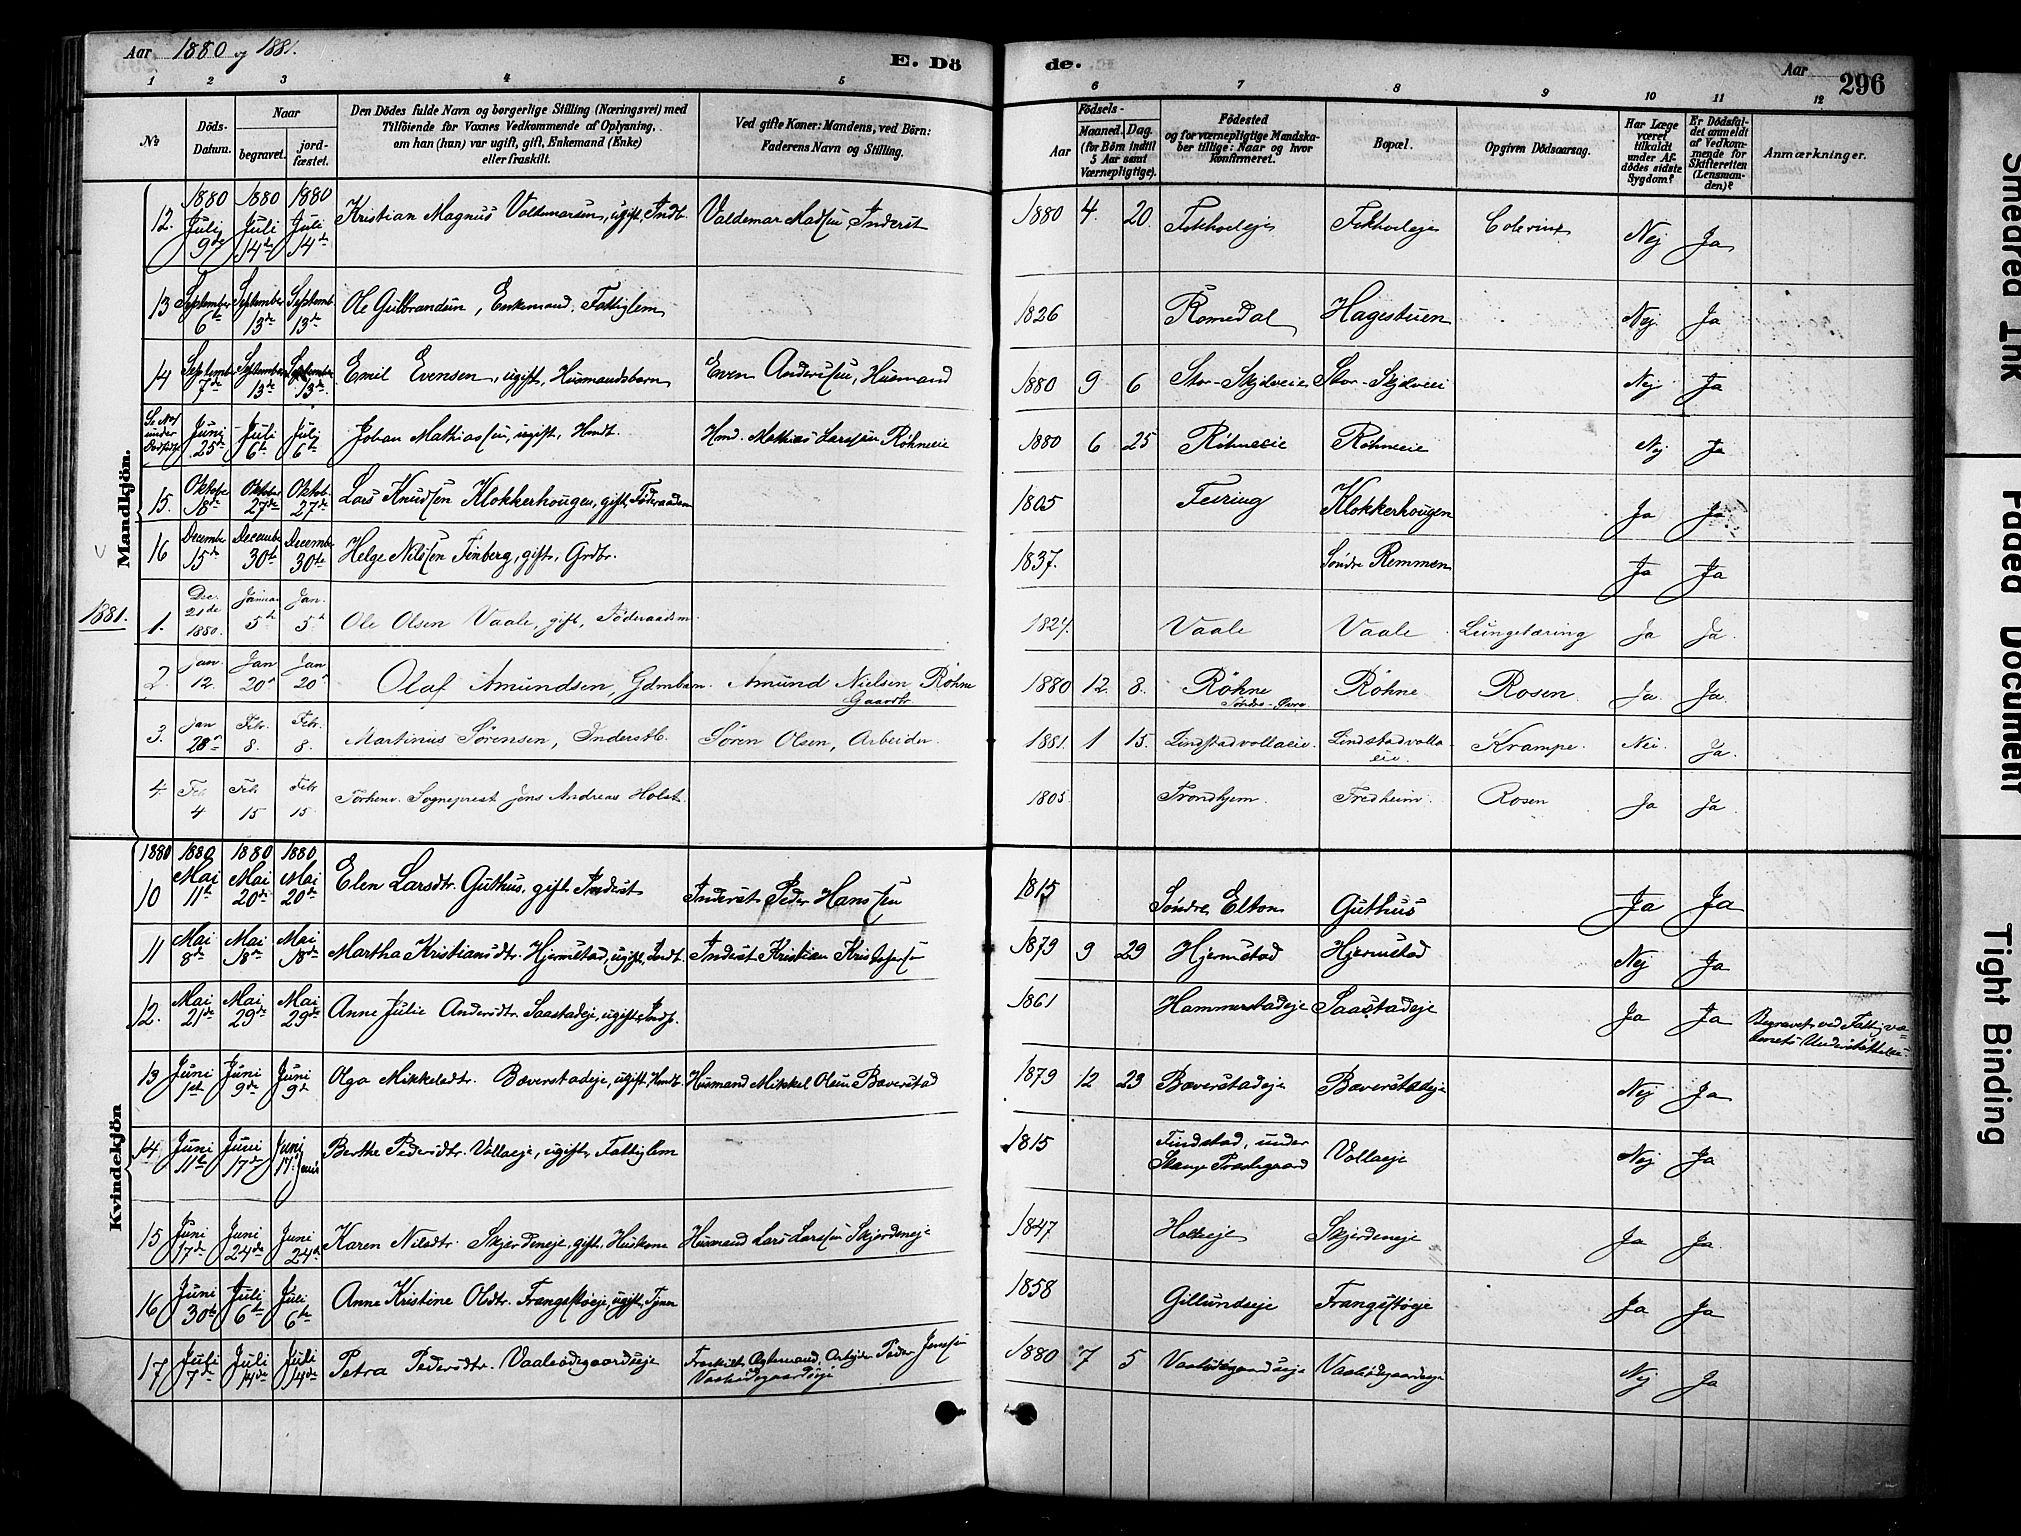 Aar 1880 og 1881.
E. Dö
de.
Aar
296
1 2 3 4 5
6 7 8 9 10 11 12
No
Döds-Datum.
Naar
begravet.
jord-fæstet.
Den Dödes fulde Navn og borgerlige Stilling (Næringsvei) med
Tilföiende for Voxnes Vedkommende af Oplysning,
om han (hun) var ugift, gift, Enkemand (Enke)
eller fraskilt.
Ved gifte Koner: Mandens, ved Börn:
Faderens Navn og Stilling.
Födsels-
Aar
Maaned. Dag.
(for Börn indtil
5 Aar samt
Værnepligtige).
Födested
og for værnepligtige Mandska-
ber tillige: Naar og hvor
konfirmeret.
Bopæl.
Opgiven Dödsaarsag.
Har Læge
været
tilkaldt
under Af-
dödes sidste
Sygdom?
Er Dödsfal-
det anmeldt
af Vedkom-
mende for
Skifteretten
(Lensman-
den)?
Anmærkninger.
Mandkjön.
1880 1880 1880
12. Juli 9de Juli 14de Juli 14de Kristian Magnus Valdemarsen, ugift, Indb. Valdemar Madsen Inderst 1880 4. 20. Nej Ja
13 September 6te September 13de Septemb 13de Ole Gulbrandsen, Enkemand, Fattiglem 1826 Romedal Hagestuen Nej Ja
14 Septembr 7de September 13de September 13de Emil Evensen, ugift, Husmandsbarn Even Anderssen, Husmand 1880 9 6 Stor-Skjelveie Stor-Skjelveie Nej Ja
Se No under Juni 25de Juli 6te Juli 6te Johan Mathiassen, ugift, Hmdb. Hmd. Mathias Larssen Röhneeie 1880 6 25 Röhneeie Röhneeie Nej Ja
15. Oktober 18de Oktober 27de Oktob. 27de Lars Knudsen Klokkerhougen, gift, Föderaadsm 1805 Feiring Klokkerhougen Ja Ja
16 December 15de December 30te Decemb 30te Helge Nilssen Finberg, gift, Grdbr. 1837. Söndre Remmen Ja Ja
1881.
1. Dec. 21de 1880. Januar 5te Jan. 5te Ole Olsen Vaale, gift, Föderaadsm. 1824. Vaale Vaale Lungetæring Ja Ja
2. Jan. 12. Jan 20 Jan 20 Olaf Amundsen, Gdmbarn. Amund Nielsen Röhne Gaardbr. 1880 12. 8. Röhne Söndre-Övre Röhne Rosen Ja Ja
3. Jan 28 Febr. 8. Febr. 8. Martinius Sörensen, Inderstb. Sören Olsen, Arbeider. 1881. 1 15. Lindstadvollaeie. Lindstadvolla-eie. Krampe. Nei. Ja.
4. Feb 4 Febr 15 Febr 15. Forhenv. Sogneprest Jens Andreas Holst. 1805. Trondhjem. Fredheim. Rosen Ja Ja
Kvindekjön
1880 1880 1880 1880
10 Mai 11te Mai 20de Mai 20de Elen Larsdtr. Guthus, gift Inderst Inderst Peder Hanssen 1815 Söndre Elton Guthus Ja Ja
11 Mai 8de Mai 18de Mai 18de Martha Kristiansdtr. Hjermstad, ugift, Indb. Inderst Kristian Kristofersen 1879 9 29 Hjermstad Hjermstad Nej Ja
12. Mai 21de Mai 29de Mai 29de Anne Julie Andersdtr. Saastadeje, ugift, 1861 Hammerstadeje Saastadeje Ja Ja Begravet ved Fattigvæ-
senets Understöttelse.
13 Juni 1ste Juni 9de Juni 9de Olga Mikkelsdtr. Bæverstadeje, ugift, Hmdb. Husmand Mikkel Olsen Bæverstad 1879 12 23 Bæverstadeje Bæverstadeje Nej Ja
14 Juni 11te Juni 17de Juni 17. Juni Berthe Pedersdtr. Vollaeje, ugift, Fattiglem 1815 Findstad, under
Stange Præstegaard Vollaeje Nej Ja
15 Juni 17de Juni 24de Juni 24de Karen Nilsdtr. Skjerdeneje, gift, Huskone Husmand Lars Larssen Skjerdeneje 1847 Holteeje Skjerdeneje Ja Ja
16 Juni 30te Juli 6te Juli 6te Anne Kristine Olsdtr. Frangstöeje, ugift, Tjener 1858 Gillundseje Frangstöeje Ja Ja
17 Juli 7de Juli 14de Juli 14de Petra Pedersdtr. Vaaleödegaardseje Fraskilt Ægtemand, Arbejder Peder Jenssen
Vaaleödegaardseje 1880 7 5 Vaaleödegaardseje Vaaleödegaardseje Nej Ja
Smeared Ink
Faded Document
Tight Binding